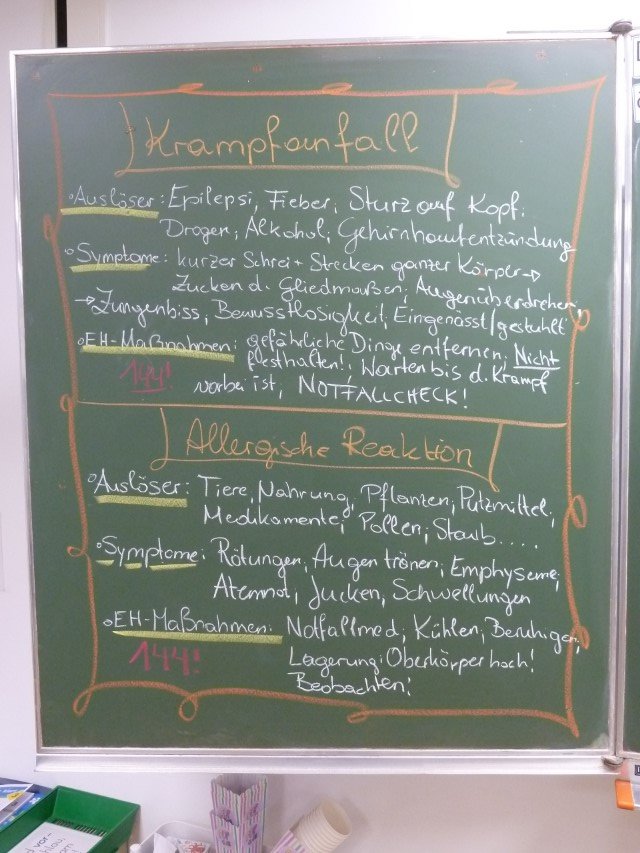 Krampfanfall
Auslöser: Epilepsi, Fieber, Sturz auf Kopf,
Drogen, Alkohol, Gehirnhautentzündung
Symptome: kurzer Schrei + Strecken ganzer Körper →
Zucken d. Gliedmaßen, Augenüberdrehen,
→ Zungenbiss, Bewusstlosigkeit, Eingenässt/gestuhlt
EH-Maßnahmen: gefährliche Dinge entfernen, Nicht
144! festhalten!, Warten bis d. Krampf
vorbei ist, NOTFALLCHECK!
Allergische Reaktion
Auslöser: Tiere, Nahrung, Pflanzen, Putzmittel,
Medikamente, Pollen, Staub.....
Symptome: Rötungen, Augen tränen, Emphyseme,
Atemnot, Jucken, Schwellungen
EH-Maßnahmen: Notfallmed., Kühlen, Beruhigen,
144! Lagerung: Oberkörper hoch!
Beobachten!